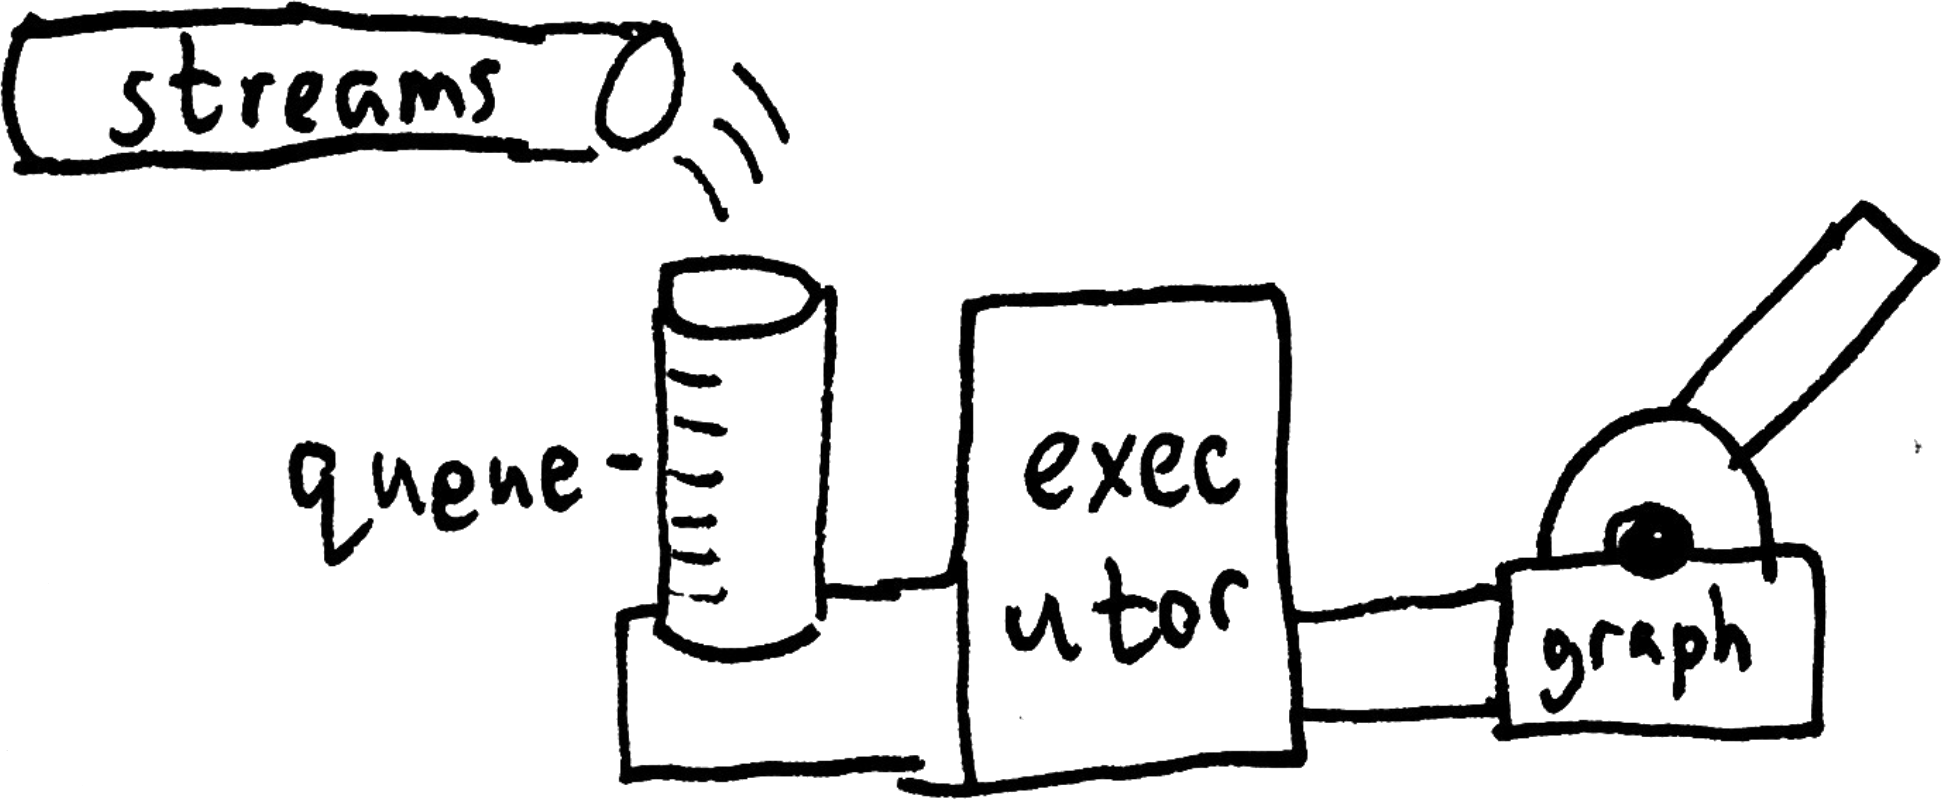 streams
queue
exec
utor
graph